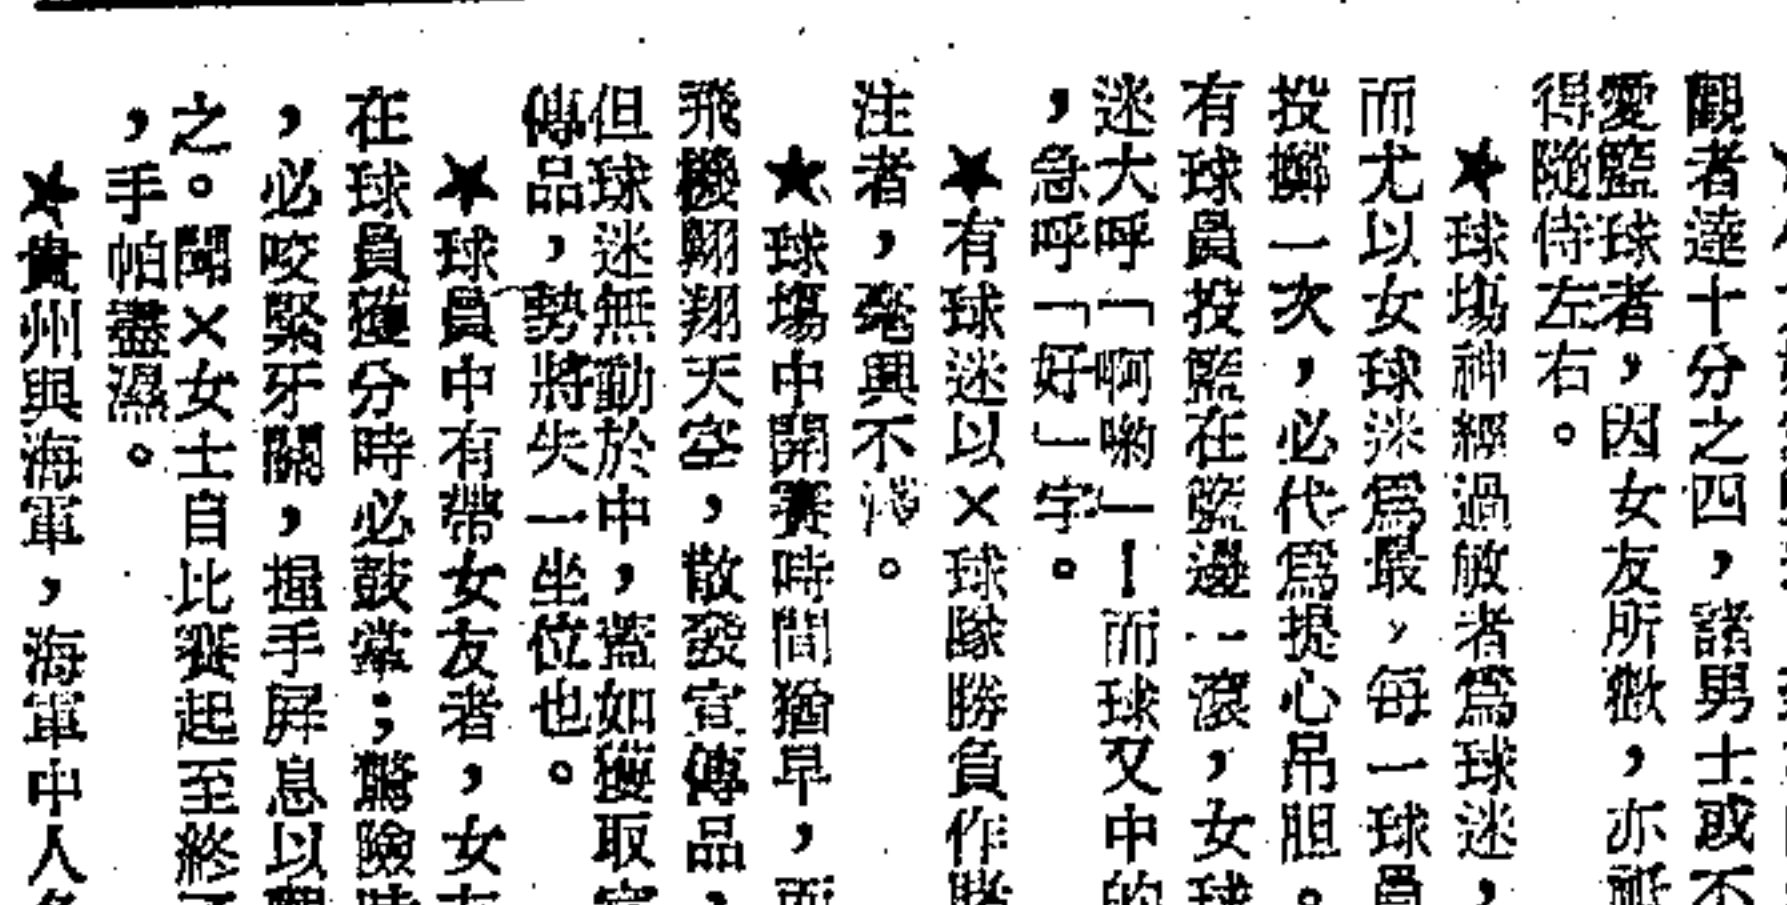 觀者達十分之四，諸男士或不
愛籃球者，因女友所歡，亦祇
得隨侍左右。
★球場神經過敏者爲球迷，
而尤以女球迷爲最，每一球員
投擲一次，必代爲提心吊胆。
有球員投籃在籃邊一滾，女球
迷大呼「啊喲—！而球又中的
，急呼「好」字。
★有球迷以×球隊勝負作賭
注者，毫興不淺。
★球場中開賽時間猶早，而
飛機翱翔天空，散發宣傳品，
但球迷無動於中，蓋如獲取宣
傳品，勢將失一坐位也。
★球員中有帶女友者，女友
在球員獲分時必鼓掌；驚險時
，必咬緊牙關，握手屏息以觀
之。聞×女士自比賽起至終了
，手帕盡濕。
★貴州與海軍，海軍中人多